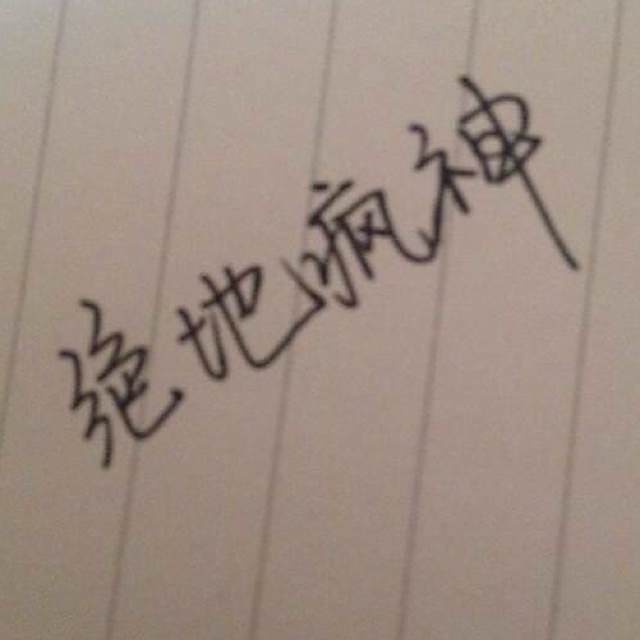 绝地疯神